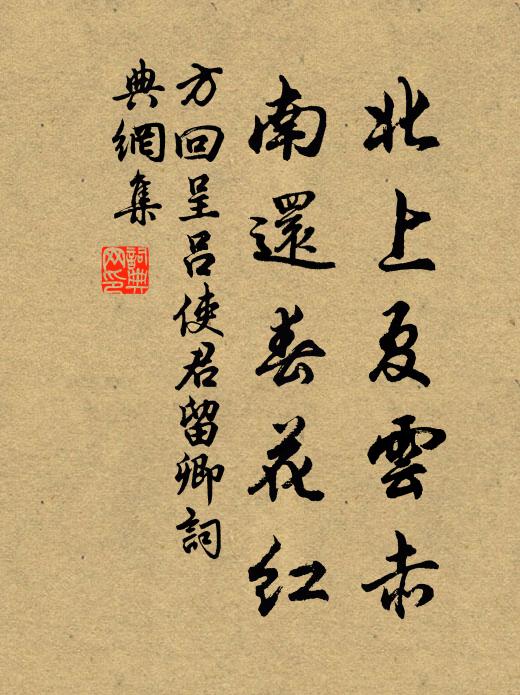 北上夏雲赤
南還春花红
方回呈呂使君留卿詞
典網集
詞典網印